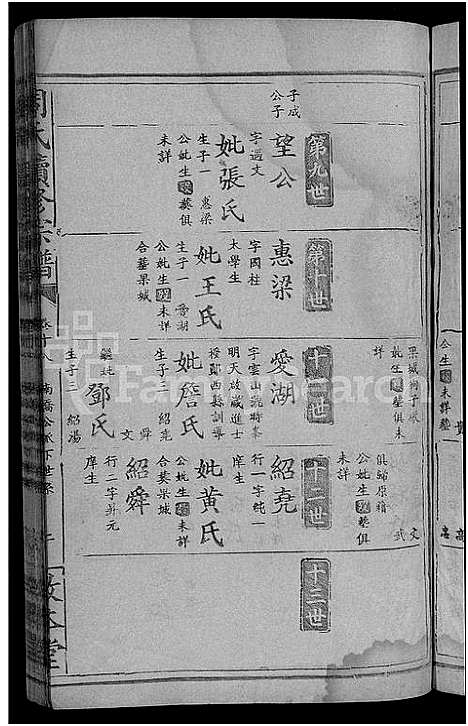 俱歸原籍
公妣生歿葬俱
未詳
文
武
子成
公子
第九世
望公
字遇文
妣張氏
生子一 惠梁
公妣生歿葬俱
未詳
第十世
惠梁
字國柱
太學生
妣王氏
生子一 愛湖
公妣生歿未詳
合葬果城
十一世
愛湖
字雲山號時峯
明天啟歲進士
授鄖西縣訓導
妣詹氏
生子二 紹堯
舜
文
繼妣
鄧氏
生子三 紹湯
十二世
紹堯
行一字純一
庠生
妣黄氏
公妣生歿未詳
合葬果城
紹舜
行二字昇元
庠生
十三世
周氏續修宗譜
南喬公派下世系
敦本堂